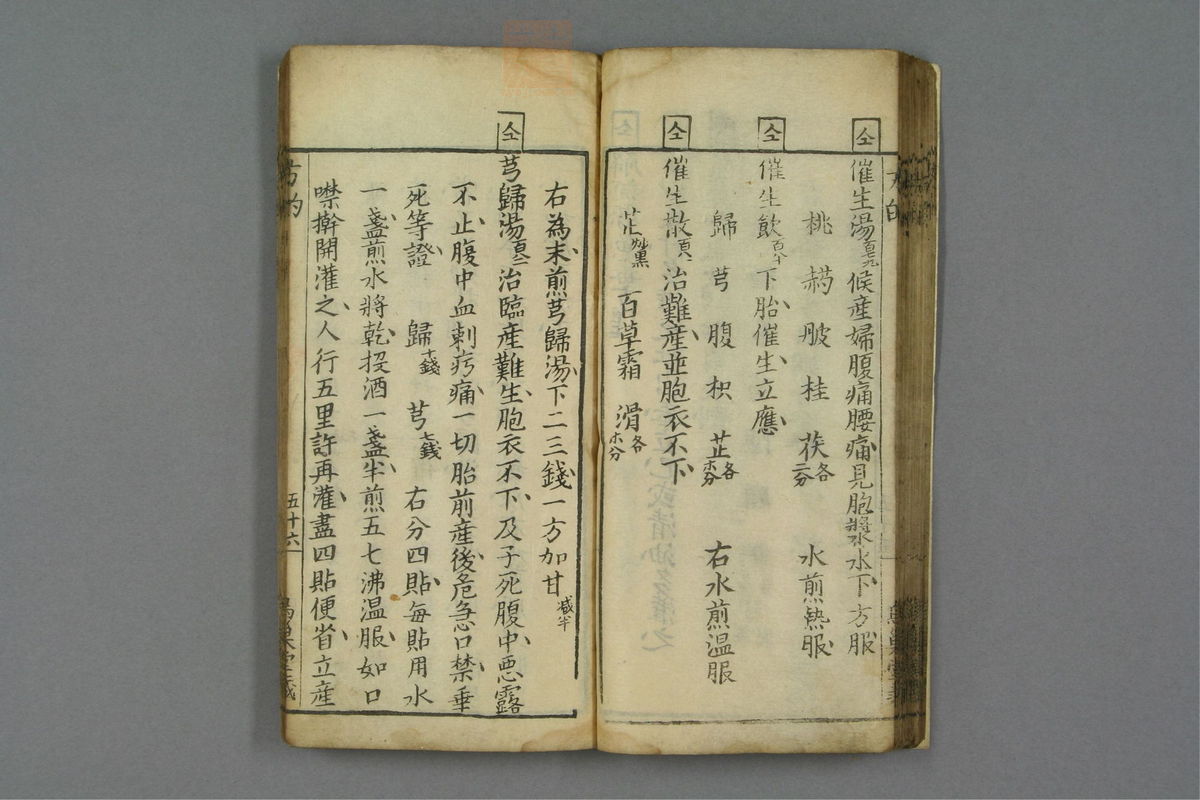 催生湯百九候産婦腹痛腰痛見胞漿水下方服
桃 葯 般 桂 茯各二分 水煎熱服
催生飲百十下胎催生立應
歸 芎 腹 枳 芷各木分 右水煎温服
催生散百一治難産並胞衣不下
芷炒黑 百草霜 滑各木分
右為末煎芎歸湯下二三錢一方加甘減半
芎歸湯百二治臨産難生胞衣不下及子死腹中悪露
不止腹中血刺疞痛一切胎前産後危急口禁垂
死等證 歸十錢 芎七錢 右分四貼每貼用水
一盞煎水將乾投酒一盞半煎五七沸温服如口
噤斡開灌之人行五里許再灌盡四貼便省立産
方的
五十六